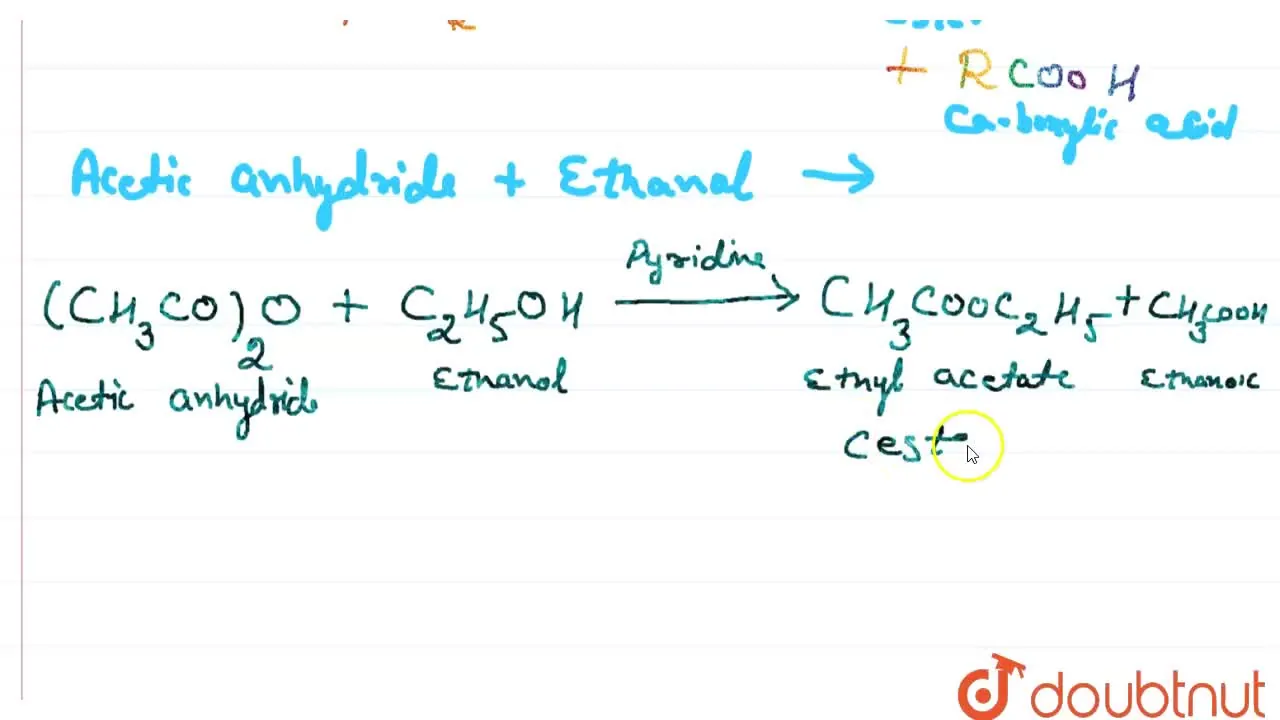 R
+ RCOOH
Carboxylic acid
Acetic anhydride + Ethanol →
Pyridine
(CH3CO)2O + C2H5OH → CH3COOC2H5 + CH3COOH
Acetic anhydride Ethanol Ethyl acetate Ethanoic
(est
doubtnut